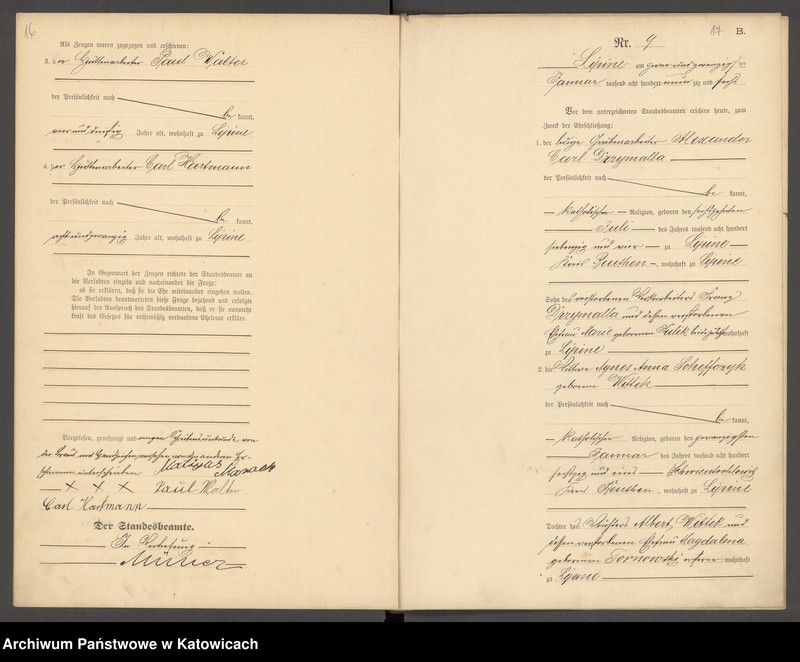 16
Als Zeugen waren zugezogen und erschienen:
3. der Hüttenarbeiter Paul Walter
der Persönlichkeit nach
be kannt,
vier und dreißig Jahre alt, wohnhaft zu Lipine
4. der Hüttenarbeiter Carl Hartmann
der Persönlichkeit nach
be kannt,
acht und zwanzig Jahre alt, wohnhaft zu Lipine
In Gegenwart der Zeugen richtete der Standesbeamte an
die Verlobten einzeln und nacheinander die Frage:
ob sie erklären, daß sie die Ehe miteinander eingehen wollen.
Die Verlobten beantworteten diese Frage bejahend und erfolgte
hierauf der Ausspruch des Standesbeamten, daß er sie nunmehr
kraft des Gesetzes für rechtmäßig verbundene Eheleute erkläre.
Vorgelesen, genehmigt und wegen Schreibensunkunde von
der Braut mit Handzeichen versehen von den anderen Er-
schienenen unterschrieben
+ + + Paul Walter
Carl Hartmann
Der Standesbeamte.
In Vertretung
Müller
17 B.
Nr. 9
Lipine am zwei und zwanzigsten
Januar tausend acht hundert neunzig und sechs
Vor dem unterzeichneten Standesbeamten erschien heute, zum
Zweck der Eheschließung:
1. der ledige Grubenarbeiter Alexander
Carl Drzymalla
der Persönlichkeit nach
be kannt,
katholischer Religion, geboren den sechszehnten
Juli des Jahres tausend acht hundert
siebenzig und vier zu Lipine
Kreis Beuthen, wohnhaft zu Lipine
Sohn des verstorbenen Franz
Drzymalla und dessen verstorbenen
Ehefrau Marie geborenen Kulik wohnhaft
zu Lipine
2. die Wittwe Agnes Anna Scheffczyk
geborene Wittek
der Persönlichkeit nach
be kannt,
katholischer Religion, geboren den zwanzigsten
Januar des Jahres tausend acht hundert
sechszig und eins Schwientochlowitz
Kreis Beuthen, wohnhaft zu Lipine
Tochter des Albert Wittek und
dessen verstorbenen Ehefrau Magdalena
geborenen Tornowski ersterer wohnhaft
zu Lipine
Archiwum Państwowe w Katowicach